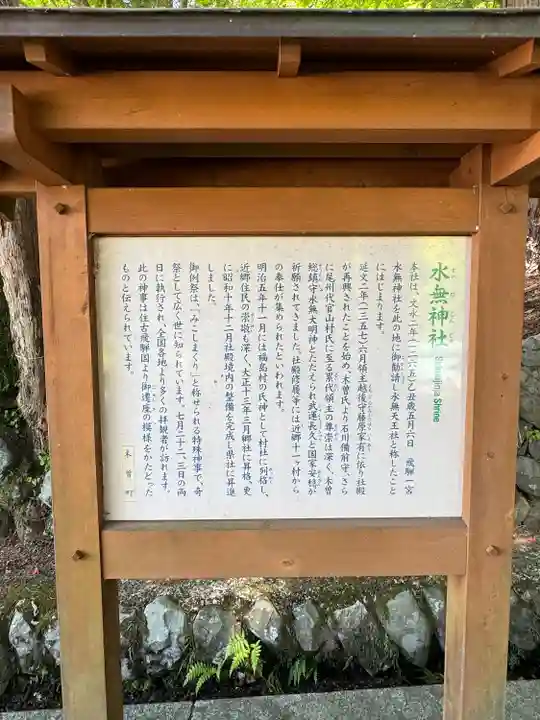 水無神社 Suimujinja Shrine
本社は、文永二年(一二六五)乙丑歳五月六日 飛騨一宮
水無神社を此の地に御勧請し水無天王社と称したこと
にはじまります。
延文二年(一三五七)六月領主越後守藤原家有に依り社殿
が再興されたことを始め、木曽氏より石川備前守、さら
に尾州代官山村氏に至る累代領主の尊崇は深く、木曽
総鎮守水無大明神とたたえられ武運長久と国家安穏が
祈願されてきました。社殿修履等には近郷十一ヶ村から
の奉仕が集められたといわれます。
明治五年十一月には福島村の氏神として村社に列格し、
近郷住民の崇敬も深く、大正十三年三月郷社に昇格、更
に昭和十年十二月社殿境内の整備を完成し県社に昇進
しました。
御例祭は、「みこしまくり」と称せられる特殊神事で、奇
祭として広く世に知られています。七月二十二、三日の両
日に執行され、全国各地より多くの拝観者が訪れます。
此の神事は往古飛騨国より御遷座の模様をかたどった
ものと伝えられています。
木曽町